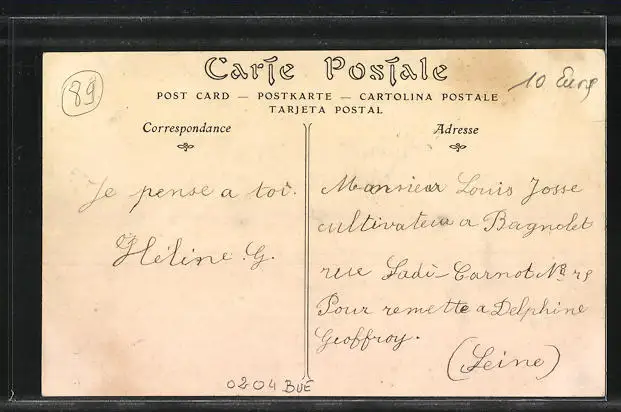 Carte Postale
89
10 Euro
POST CARD — POSTKARTE — CARTOLINA POSTALE
TARJETA POSTAL
Correspondance
Je pense a toi.
Héline. G.
Adresse
Monsieur Louis Josse
cultivateur a Bagnolet
rue Sadi-Carnot No
Pour remette a Delphine
Geoffroy.
(Seine)
0204 BUE